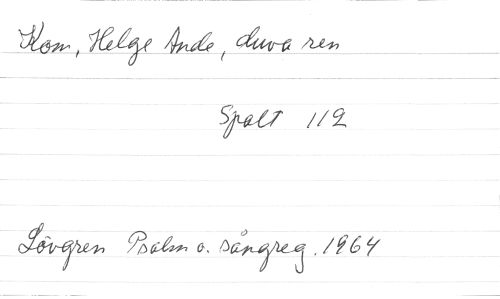 Kom, Helge Ande, duva ren
Spalt 112
Lövgren Psalm o. sångreg. 1964